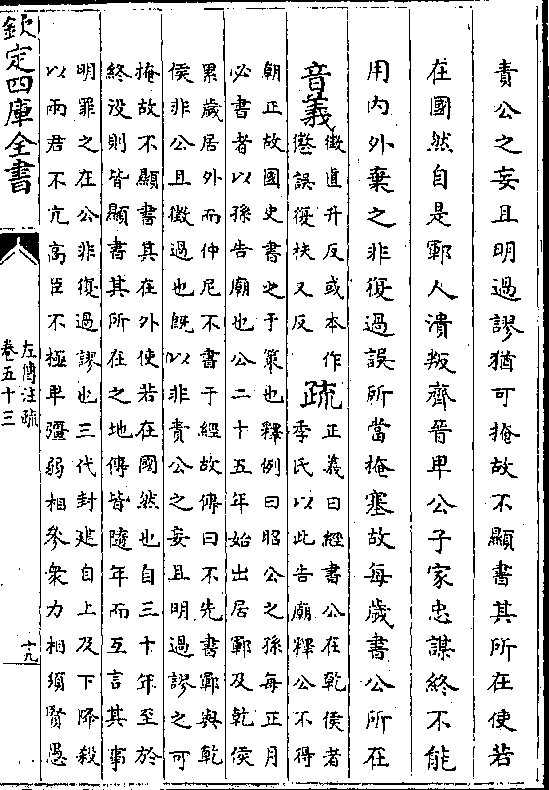 責公之妄且明過謬猶可掩故不顯書其所在使若
在國然自是鄆人潰叛齊晉卑公子家忠謀終不能
用内外棄之非復過誤所當掩塞故每歲書公所在
音義
徵直升反或本作
懲誤復扶又反
疏
正義曰經書公在乾侯者
季氏以此告廟釋公不得
朝正故國史書之于策也釋例曰昭公之孫每正月
必書者以孫告廟也公二十五年始出居鄆及乾侯
累歲居外而仲尼不書于經故傳曰不先書鄆與乾
侯非公且徵過也既以非責公之妄且明過謬之可
掩故不顯書其在外使若在國然也自三十年至於
終没則皆顯書其所在之地傳皆隨年而互言其事
明罪之在公非復過謬也三代封建自上及下降殺
以兩君不亢高臣不極卑彊弱相參衆力相須賢愚
欽定四庫全書
左傳注疏
卷五十三
十九